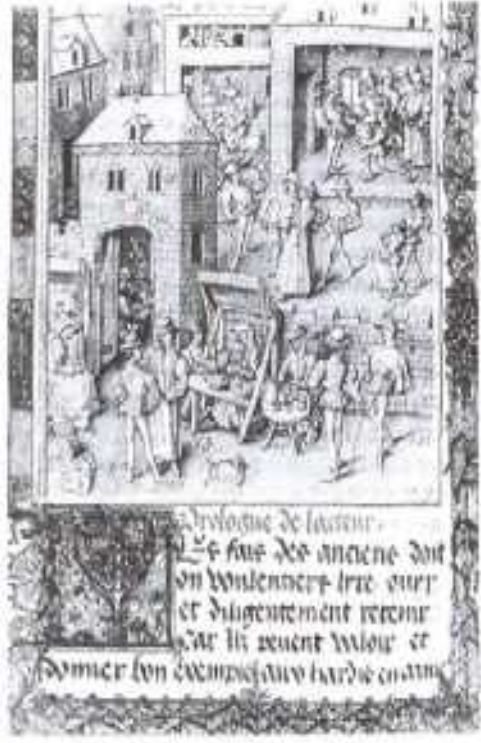 Prologue de lacteur.
Les fais des anciens doit
on voulentiers lire ouyr
et diligentement retenir
Car ilz peuent valoir et
donner bon exemple aux hardis en